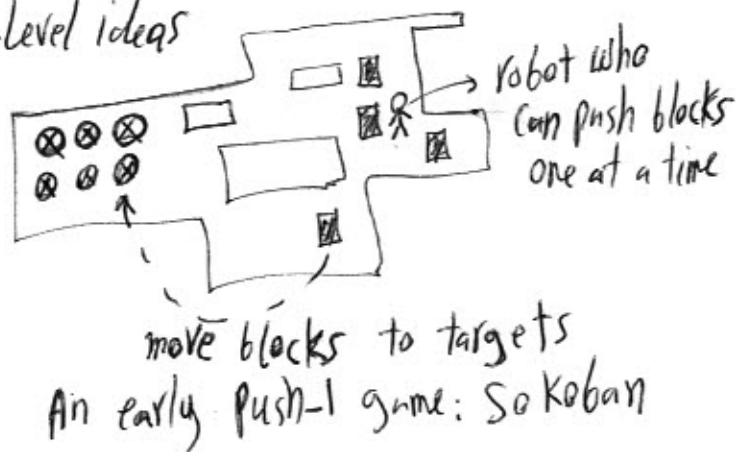 Level ideas
robot who
can push blocks
one at a time
move blocks to targets
An early Push-1 game: Sokoban